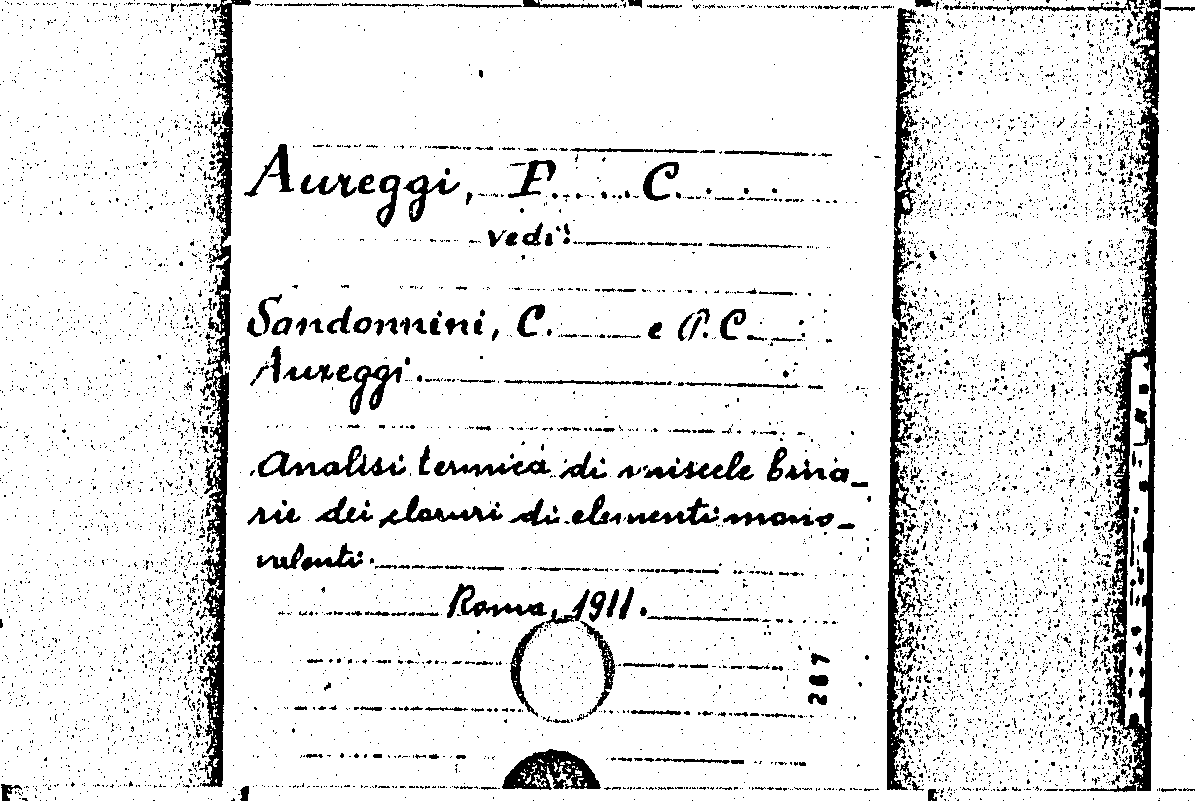 Aureggi, P. C.
vedi:
Sandonnini, C. e P. C.
Aureggi.
Analisi termica di miscele bina-
rie dei cloruri di elementi mono-
valenti.
Roma, 1911.
267